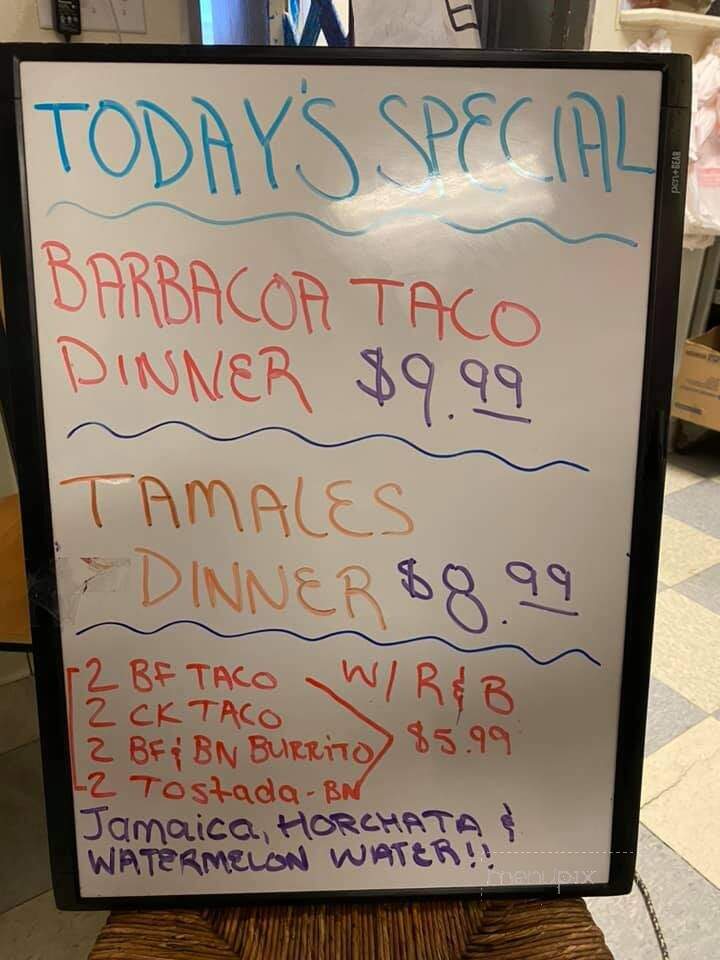 TODAY'S SPECIAL
BARBACOA TACO
DINNER $9.99
TAMALES
DINNER $8.99
2 BF TACO W/ R & B
2 CK TACO
2 BF & BN BURRITO $5.99
2 Tostada - BN
Jamaica, HORCHATA &
WATERMELON WATER!!
pen+GEAR
menupix